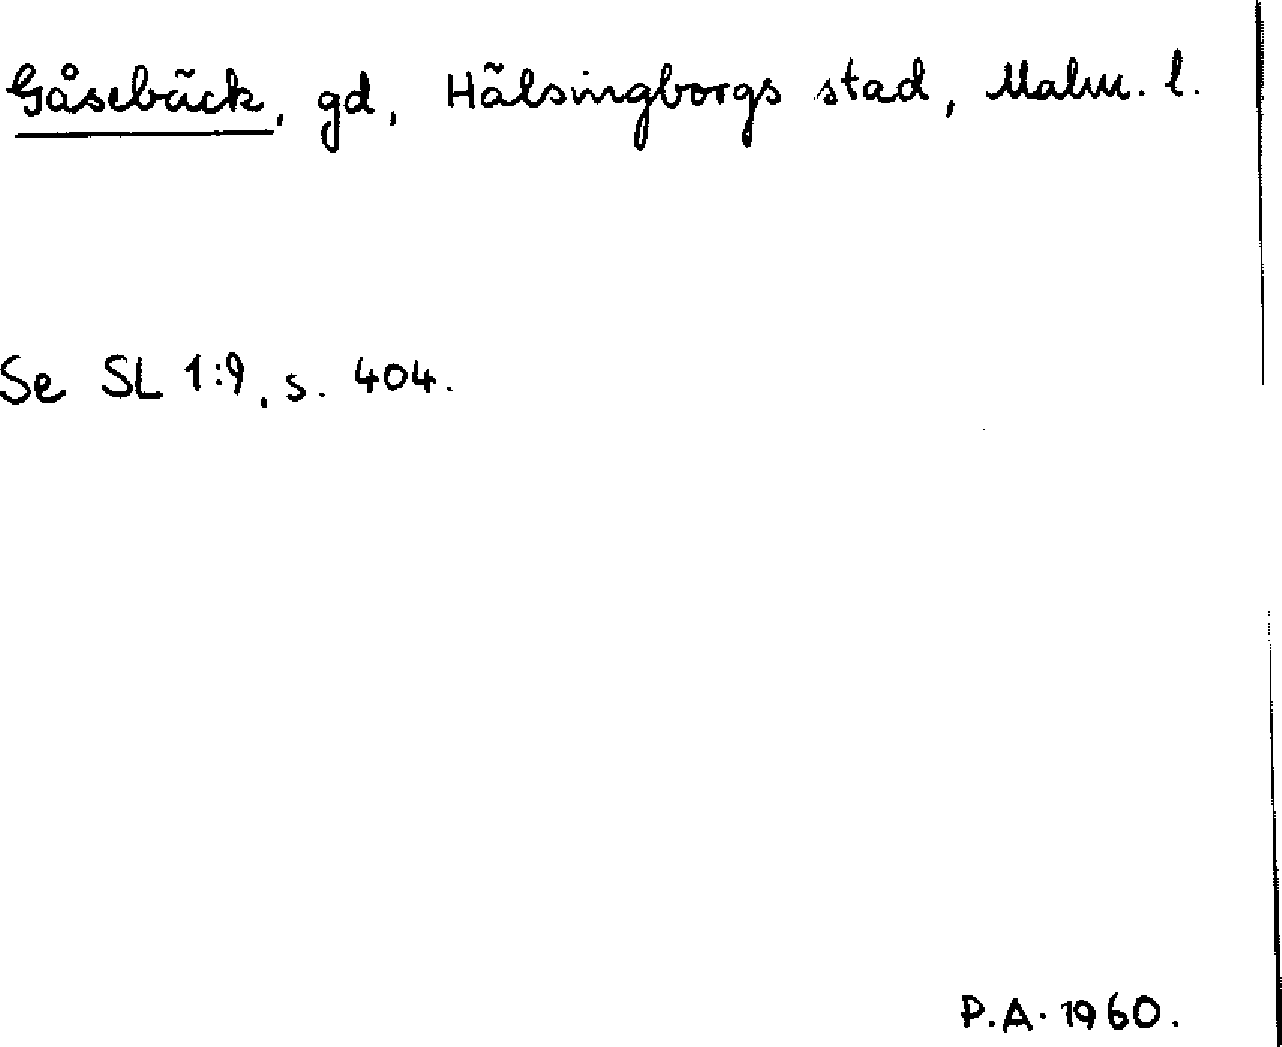 Gåsebäck, gd, Hälsingborgs stad, Malm. l.
Se SL 1:9, s. 404.
P.A. 1960.